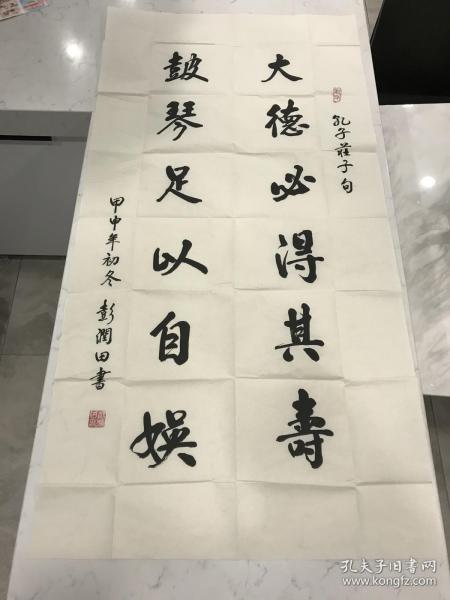 孔子莊子句
大德必得其壽
鼓琴足以自娱
甲申年初冬 彭潤田書
孔夫子旧书网
www.kongfz.com